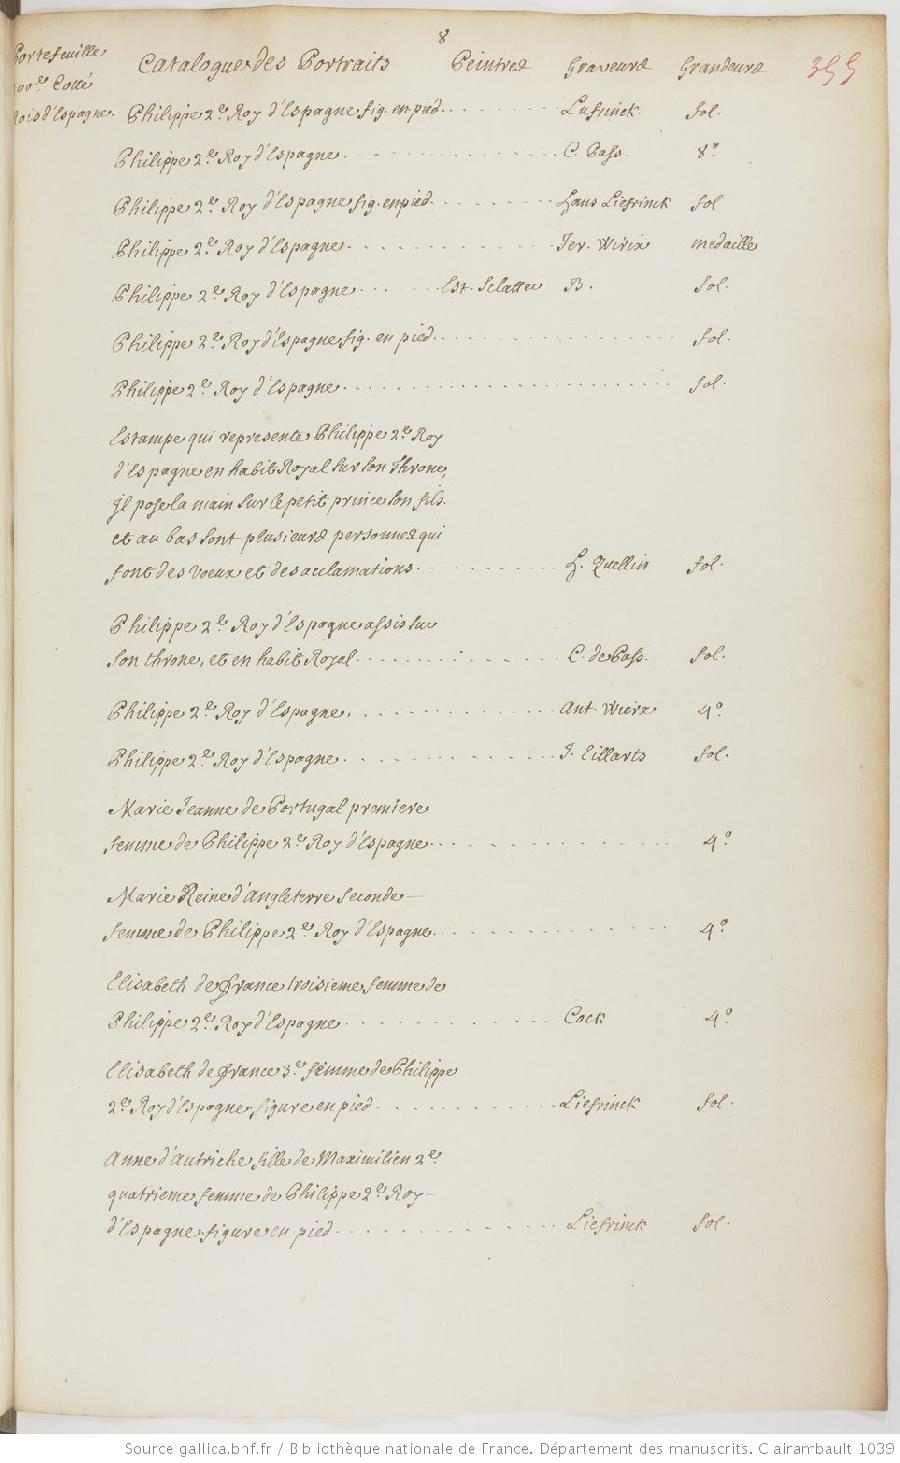 8
Portefeuille Catalogue des Portraits Peintres Graveurs Grandeurs 355
Cotté
Rois d'Espagne. Philippe 2.e Roy d'Espagne fig. en pied. Lufrinck. fol.
Philippe 2.e Roy d'Espagne. C. Pass. 8.o
Philippe 2.e Roy d'Espagne fig. en pied. Hans Liefrinck fol
Philippe 2.e Roy d'Espagne. Jer. Wirix medaille
Philippe 2.e Roy d'Espagne B. fol.
Philippe 2.e Roy d'Espagne fig. en pied. fol.
Philippe 2.e Roy d'Espagne. fol.
Estampe qui represente Philippe 2.e Roy
d'Espagne en habit Royal sur son Throne,
jl pose la main sur le petit prince son fils.
et au bas sont plusieurs personnes qui
font des voeux et des acclamations. H. Quellin fol.
Philippe 2.e Roy d'Espagne assis sur
son throne, et en habit Royal. C. de Pass. fol.
Philippe 2.e Roy d'Espagne. Ant. Wierx 4.o
Philippe 2.e Roy d'Espagne. J. Eillarts fol.
Marie Jeanne de Portugal premiere
femme de Philippe 2.e Roy d'Espagne. 4.o
Marie Reine d'Angleterre seconde
femme de Philippe 2.e Roy d'Espagne. 4.o
Elisabeth de France troisieme femme de
Philippe 2.e Roy d'Espagne. Cock 4.o
Elisabeth de France 3.e femme de Philippe
2.e Roy d'Espagne, figure en pied. Liefrinck fol.
Anne d'Autriche fille de Maximilien 2.e
quatrieme femme de Philippe 2.e Roy
d'Espagne, figure en pied. Liefrinck fol.
Source gallica.bnf.fr / Bibliothèque nationale de France. Département des manuscrits. Clairambault 1039